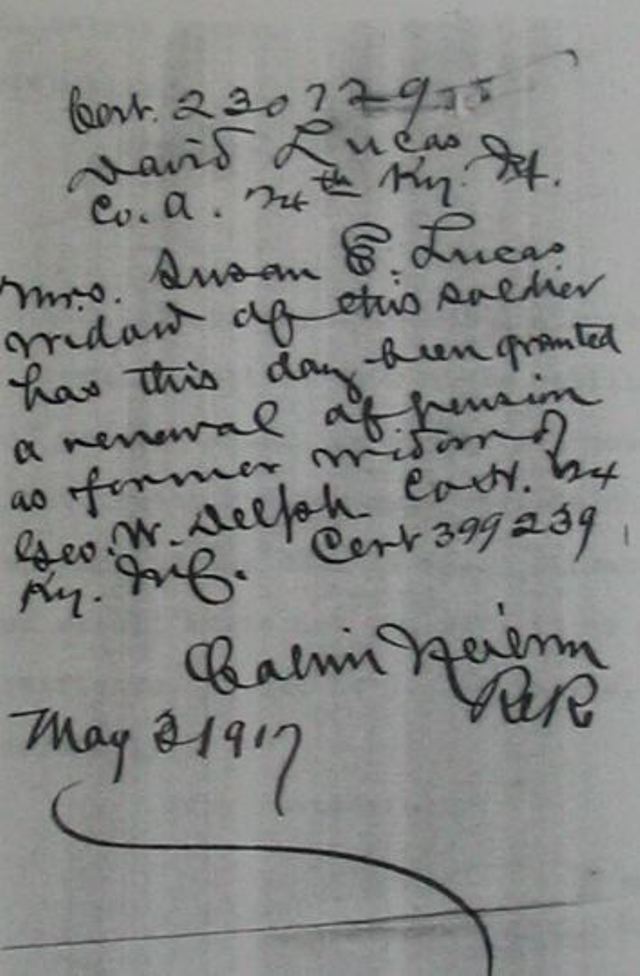 Cert. 230729
David Lucas
Co. A. 24th Ky.
Mrs. Susan E. Lucas
widow of this soldier
has this day been granted
a renewal of pension
as former widow of
Geo. W. Delph Co. H. 24
Ky. Inf. Cert 399239
Calvin
May 2 1917